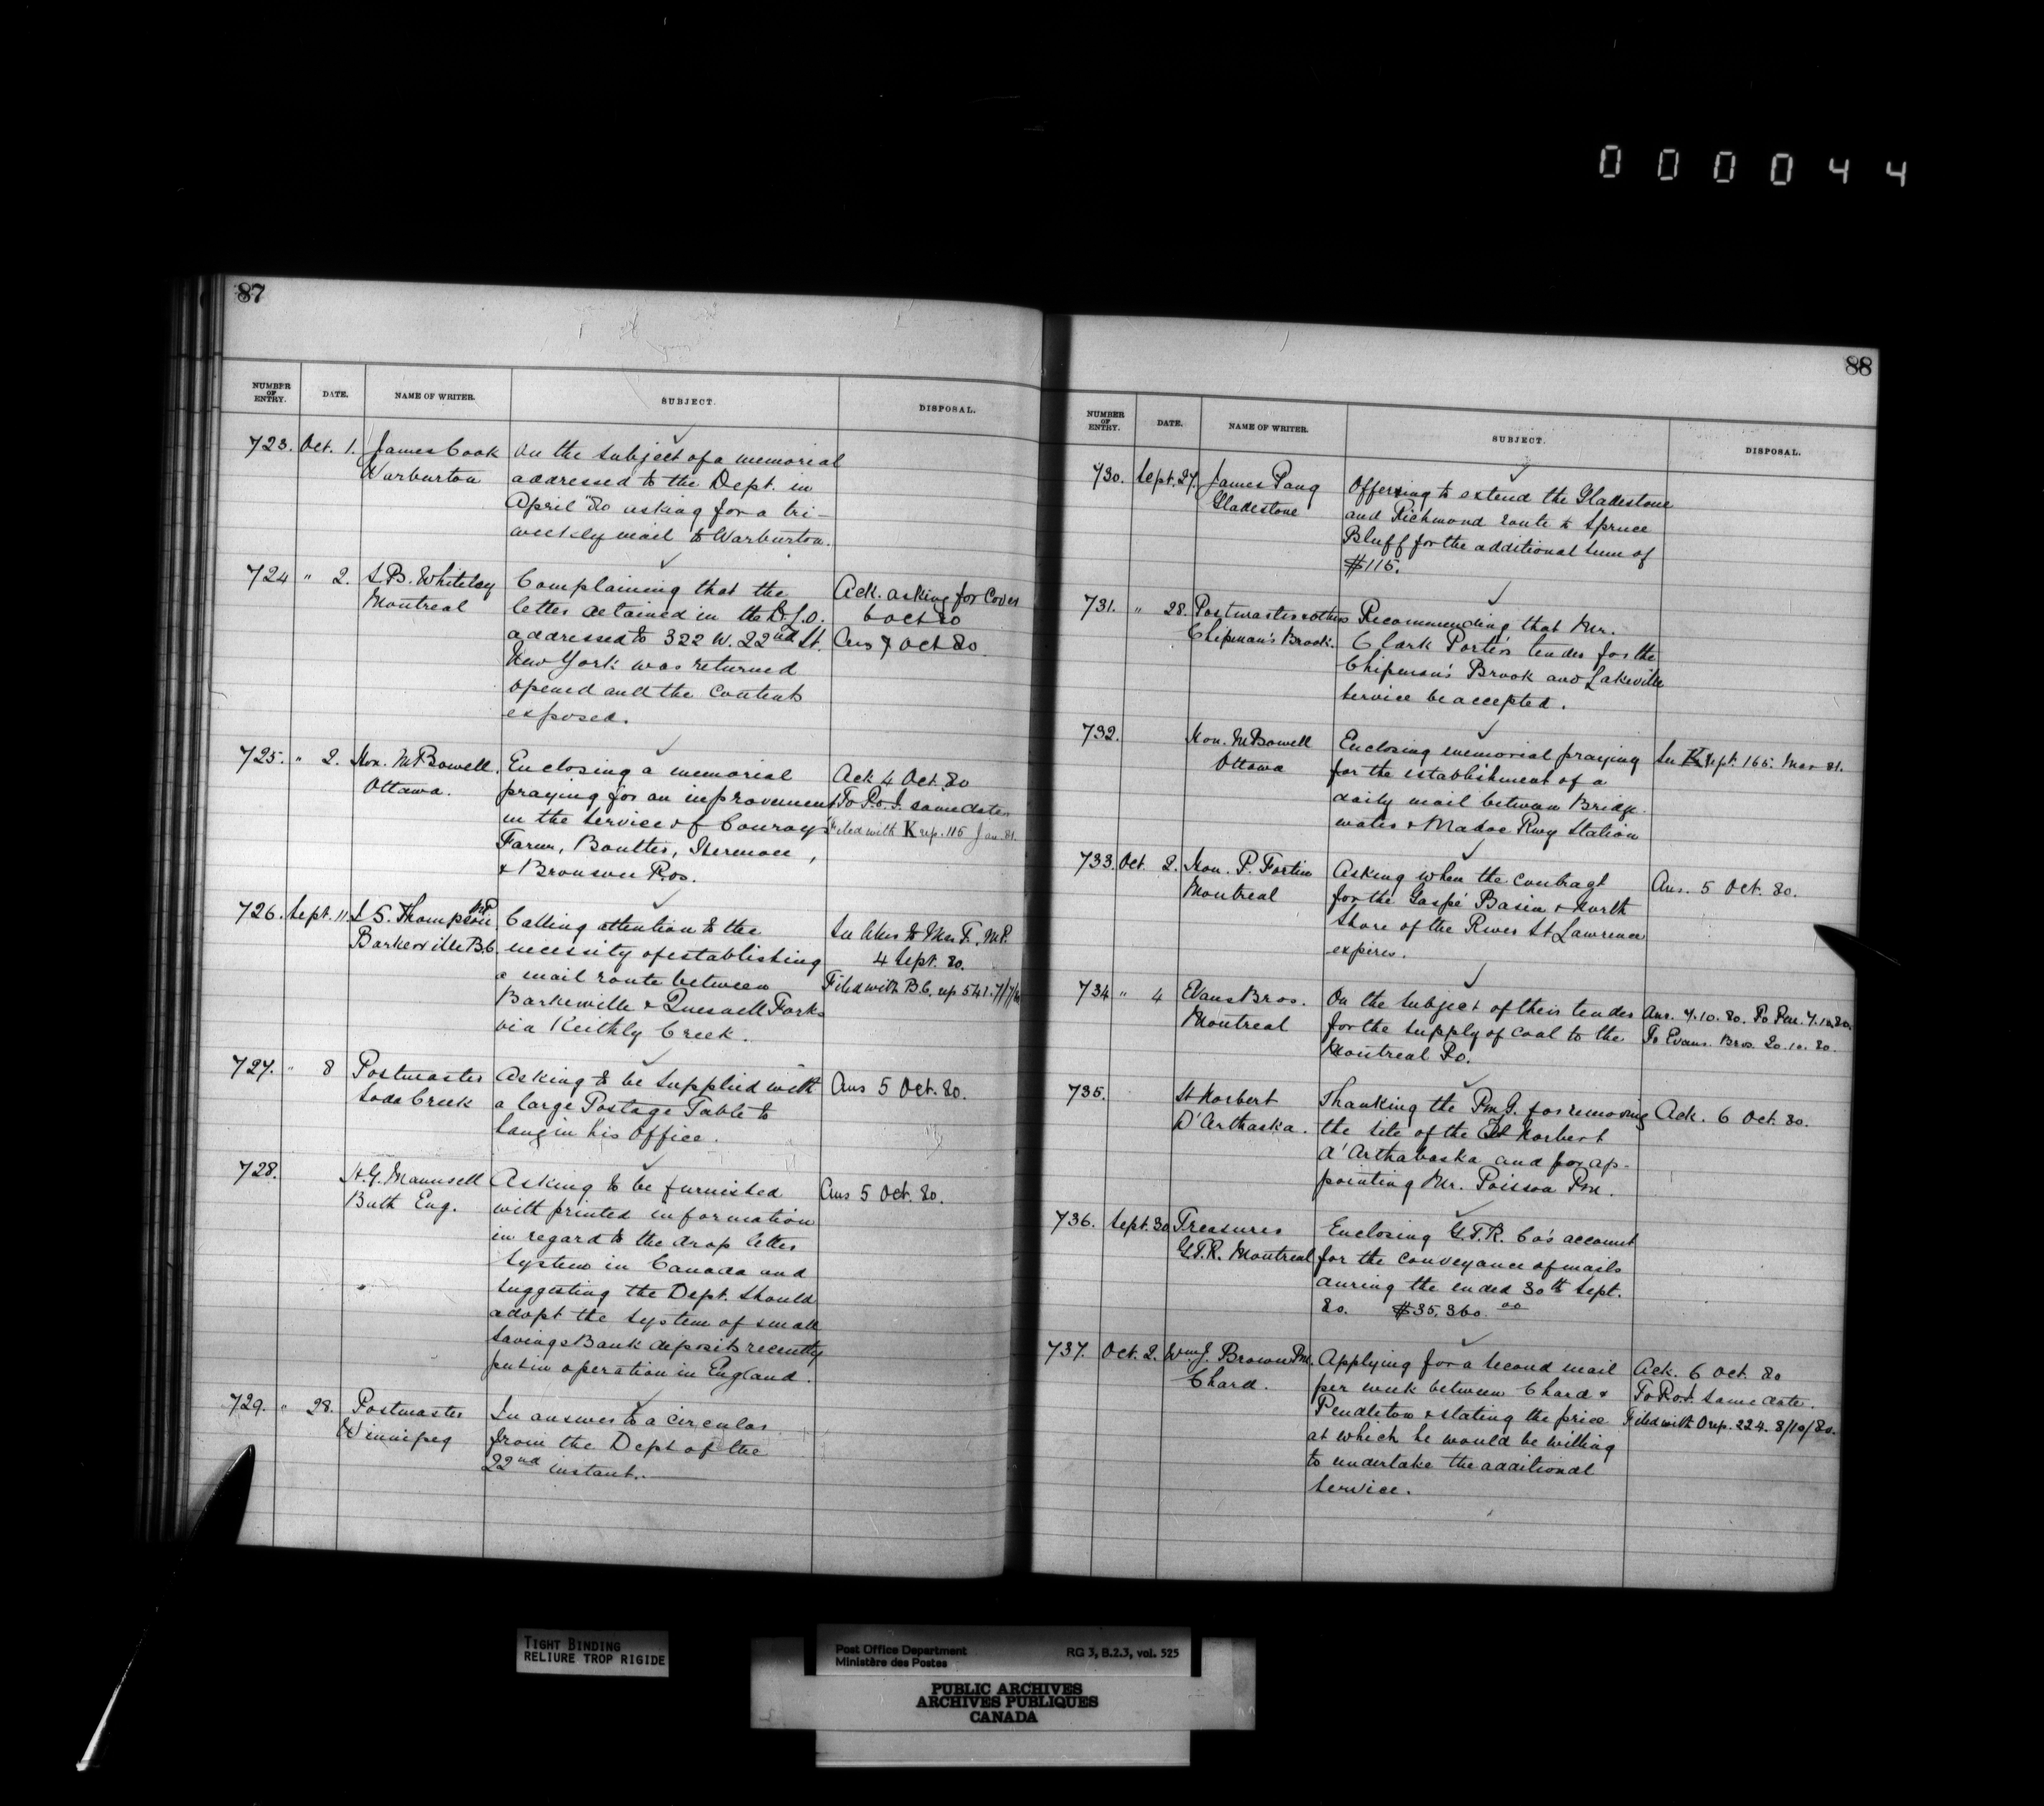 000044
87
NUMBER OF ENTRY. DATE. NAME OF WRITER. SUBJECT. DISPOSAL.
723. Oct. 1. James Cook On the subject of a memorial
Warburton addressed to the Dept. in
April '80 asking for a tri-
weekly mail to Warburton.
724 " 2. S. B. Whiteley Complaining that the Ack. asking for Cover
Montreal letter detained in the D.L.O. 6 Oct 80
addressed to 322 W. 22nd St. Ans 7 Oct 80.
New York was returned
opened and the contents
exposed.
725. " 2. Hon. M Bowell. Enclosing a memorial Ack 4 Oct. 80
Ottawa. praying for an improvement To P.O.I. same date
in the service of Conroys Filed with K rep. 115 Jan. 81.
Farm, Boulter, Hermon,
& Bronson P.Os.
726. Sept. 11. S. Thompson MP Calling attention to the In Ans to Mr. F. MP.
Barkerville B.C. necessity of establishing 4 Sept. 80.
a mail route between Filed with B.C. rep 541.
Barkerville & Quesnell Forks
via Keithly Creek.
727. " 8 Postmaster Asking to be supplied with Ans 5 Oct. 80.
Soda Creek a large Postage Table to
hang in his office.
728. H. G. Maunsell Asking to be furnished Ans 5 Oct. 80.
Bath Eng. with printed information
in regard to the drop letter
system in Canada and
suggesting the Dept. should
adopt the system of small
Savings Bank deposits recently
put in operation in England.
729. " 28. Postmaster In answer to a circular
Winnipeg from the Dept of the
22nd instant.
88
NUMBER OF ENTRY. DATE. NAME OF WRITER. SUBJECT. DISPOSAL.
730. Sept. 27. James Pang Offering to extend the Gladestone
Gladestone and Richmond route to Spruce
Bluff for the additional sum of
$115.
731. " 28. Postmaster & others Recommending that Mr.
Chipman's Brook. Clark Porter's tender for the
Chipman's Brook and Lakeville
service be accepted.
732. Hon. M Bowell Enclosing memorial praying In K Rept. 165. Mar 81.
Ottawa for the establishment of a
daily mail between Bridge-
water & Madoc Rwy Station
733. Oct 2. Hon. P. Fortin Asking when the contract Ans. 5 Oct. 80.
Montreal for the Gaspé Basin & North
Shore of the River St Lawrence
expires.
734 " 4 Evans Bros. On the subject of their tender Ans. 7.10.80. To Pm. 7.10.80.
Montreal for the supply of coal to the To Evans Bros. 20.10.80.
Montreal Po.
735. St Norbert Thanking the PmG. for removing Ack. 6 Oct. 80.
D'Arthaska. the site of the St Norbert
d'Arthabaska and for ap-
pointing Mr. Poisson Pm.
736. Sept. 30 Treasurer Enclosing G.T.R. Co's account
G.T.R. Montreal for the conveyance of mails
during the ended 30th Sept.
80. $35,360.00
737. Oct. 2. Wm. J. Brown Pm. Applying for a second mail Ack. 6 Oct. 80
Chard. per week between Chard & To P.O.I. same date.
Pendleton & stating the price Filed with O rep. 224. 8/10/80.
at which he would be willing
to undertake the additional
service.
TIGHT BINDING
RELIURE TROP RIGIDE
Post Office Department RG 3, B.2.3, vol. 525
Ministère des Postes
PUBLIC ARCHIVES
ARCHIVES PUBLIQUES
CANADA